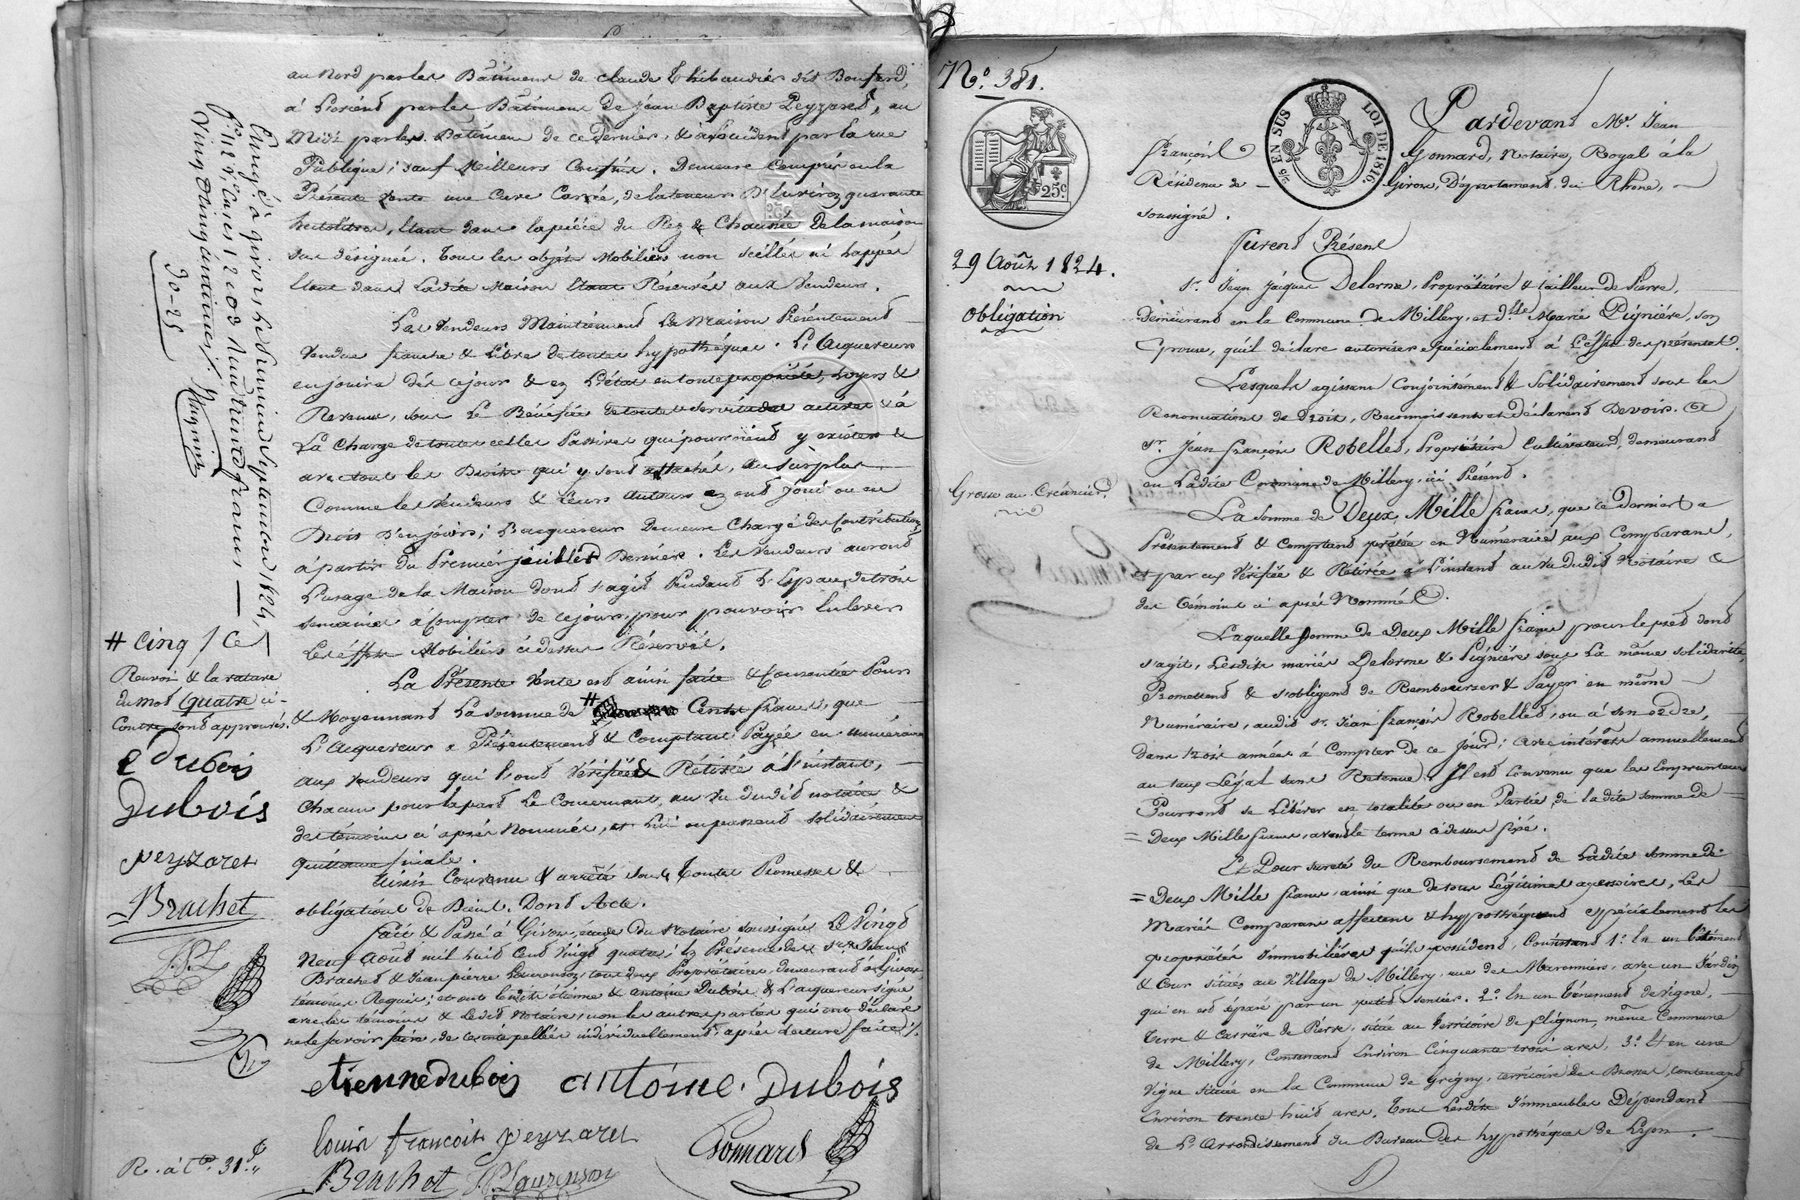 au Nord par les Bâtiment de Claude Thibaudier dit Bonnard,
à Lorient par les Bâtiment de Jean Baptiste Peyzaret, au
Midi par les Bâtiment de ce dernier, & à occident par la rue
Publique; sauf Meilleurs Confins. Demeure Compris en la
Présente Vente une Cuve Carrée, de la teneur D'Environ quarante
hectolitres, étant dans la pièce du Rez de Chaussée De la maison
sus désignée. Tous les objets Mobiliers non scellés ni happés
étant dans Ladite Maison étant Réservés aux Vendeurs.
Les Vendeurs Maintiennent La Maison Présentement
Vendue franche & Libre de toutes hypothèques. L'Acquereur
en jouira dès ce jour & en L'état en toute propriété, Loyers &
Revenus, sous Le Bénéfice de toutes servitudes actives & à
La Charge de toutes celles Passives qui pourroient y exister &
avec tous les Droits qui y sont attachés, au surplus
Comme les Vendeurs & Leurs Auteurs en ont joui ou eu
Droit D'en jouir; L'acquereur Demeure Chargé des Contributions
à partir du Premier juillet Dernier. Les Vendeurs auront
L'usage de la Maison dont s'agit Pendant L'Espace de trois
semaines à Compter de ce jour, pour pouvoir Enlever
Les effets Mobiliers ci dessus Réservés.
La Présente Vente est ainsi faite & Consentie Pour
& Moyennant La somme de # Cents francs, que
L'Acquereur a Présentement & Comptant Payée en numéraire
aux Vendeurs qui l'ont Vérifiée & Rétirée à l'instant,
Chacun pour la part Le Concernant, au Vu dudit notaire &
des témoins ci après Nommés, et Lui en passent solidairement
quittance finale.
Ainsi Convenu & arrêté sous Toutes Promesses &
obligations de Biens. Dont Acte.
Fait & Passé à Givors, étude Du Notaire soussigné Le Vingt
Neuf Août mil huit Cent Vingt quatre; En Présence des Srs Jean
Brachet & Jean pierre Laurenson, tous deux Propriétaires, demeurant à Givors
témoins Requis; et ont Lesdits étienne & antoine Dubois & L'acquereur signé
avec les témoins & Ledit Notaire, non les autres parties qui ont déclaré
ne le savoir faire, de ce interpellées individuellement, après lecture faite.
etienne dubois antoine. Dubois
louis francois peyzaret
Brachet JP Laurenson
Gonnard
Enregé à Givors, le huit Septembre 1824,
Vingt Vingt
30-25
# Cinq / Ce
Renvoi & la rature
du mot Quatre ci-
Contre sont approuvés.
E Dubois
Dubois
peyzaret
Brachet
J.P.L
R. à Cp. 31.f
N.° 381.
25c
29 Août 1824.
Obligation
Grosse au Créancier.
EN SUS
LOI DE 1816
Pardevant Me. Jean
François Gonnard, Notaire Royal à la
Résidence de Givors, Département du Rhône,
soussigné.
Furent Présent
Sr. Jean Jacques Delorme, Propriétaire & tailleur de Pierre,
demeurant en la Commune de Millery, et Dlle Marie Pignière, son
Epouse, qu'il déclare autoriser spécialement à L'effet des présentes.
Lesquels agissant Conjointement & Solidairement sous les
Renonciations de Droit, Reconnoissent et déclarent Devoir. A
Sr. Jean françois Robelled, Propriétaire Cultivateur, demeurant
en Ladite Commune de Millery, ici Présent.
La Somme de Deux Mille francs, que ce dernier a
Présentement & Comptant prêtée en Numéraire aux Comparans,
et par eux Vérifiée & Rétirée à L'instant au Vu dudit Notaire &
des témoins ci après Nommés.
Laquelle somme de Deux Mille francs pour le prêt dont
s'agit, Lesdits mariés Delorme & Pignière sous La même solidarité,
Promettent & s'obligent de Rembourser & Payer en même
Numéraire, audit Sr. Jean françois Robelled, ou à son ordre,
Dans trois années à Compter de ce Jour; avec intérêts annuellement
au taux Légal sans Retenue. Il est Convenu que les Emprunteurs
Pourront se Libérer en totalité ou en Partie de ladite somme de
= Deux Mille francs, avant le terme ci dessus fixé.
Et Pour sureté du Remboursement de Ladite somme de
= Deux Mille francs ainsi que de tous Légitimes accessoires, Les
Mariés Comparans affectent & hypothéquent spécialement les
propriétés immobilières qu'ils possèdent, Consistant 1.° En un Bâtiment
& Cour situés au Village de Millery, rue des Maronniers, avec un Jardin
qui en est séparé par un petit sentier. 2.° En un Ténement de Vigne,
Terre & Carrière de Pierre, située au Territoire de flignon, même Commune
de Millery, Contenant Environ Cinquante trois ares, 3.° Et en une
Vigne située en la Commune de Grigny, territoire des Brosses, contenant
Environ trente huit ares. Tous Lesdits Immeubles Dépendant
de L'Arrondissement du Bureau des hypothèques de Lyon.